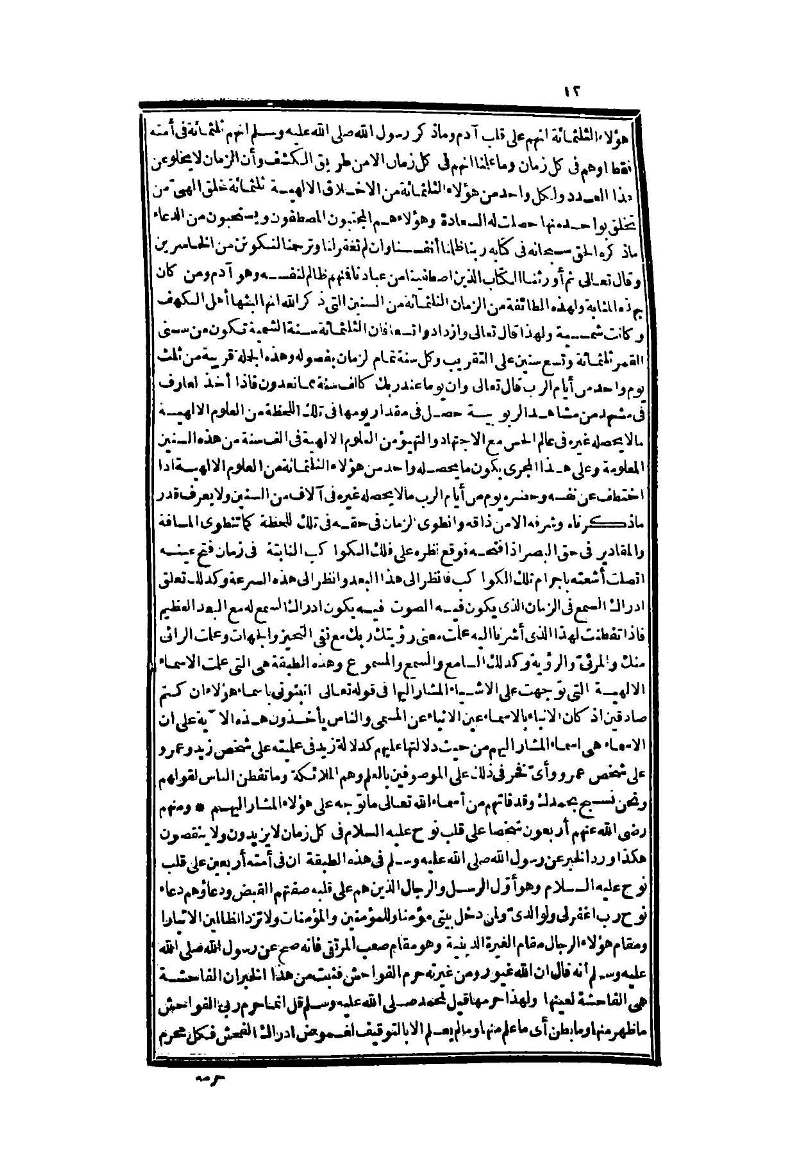 ١٢
هؤلاء الثلثمائة انهم على قلب آدم وماذكر رسول الله صلى الله عليه وسلم انهم ثلثمائة فى أمته
فقط او هم فى كل زمان وما علمنا انهم فى كل زمان الامن طريق الكشف وأن الزمان لا يخلو عن
هذا العدد ولكل واحد من هؤلاء الثلثمائة من الاخلاق الالهية ثلثمائة خلق الهى من
تخلق بواحد منها حصلت له السعادة وهؤلاء هم المجتبون المصطفون ويستحبون من الدعاء
ماذكره الحق سبحانه فى كتابه ربنا ظلمنا أنفسنا وان لم تغفر لنا وترحمنا لنكونن من الخاسرين
وقال تعالى ثم أورثنا الكتاب الذين اصطفينا من عبادنا فنهم ظالم لنفسه وهو آدم ومن كان
بهذه المثابة ولهذه الطائفة من الزمان الثلثمائة من السنين التى ذكر الله انه البثها أهل الكهف
وكانت شمسية ولهذا قال تعالى وازدادوا تسعا فان الثلثمائة سنة الشمسية تكون من سنى
القمر ثلثمائة وتسع سنين على التقريب وكل سنة تمام لزمان بفصوله وهذه الجلة قريبة من ثلث
يوم واحد من أيام الرب قال تعالى وان يوما عند ربك كالف سنة مما تعدون فاذا أخذ لعارف
فى مشهد من مشاهد الربوبية حصل فى مقدار يومها فى تلك اللحظة من العلوم الالهية
مالا يحصله غيره فى عالم الحس مع الاجتهاد والتهيؤ من العلوم الالهية فى الف سنة من هذه السنين
المعلومة وعلى هذا المجرى يكون ما يحصله واحد من هؤلاء الثلثمائة من العلوم الالهية اذا
اختطف عن نفسه وحضره يوم من أيام الرب مالا يحصله غيره فى آلاف من السنين ولا يعرف قدر
ماذكرناه وشرفه الامن ذاقه وانطوى الزمان فى حقه فى تلك اللحظة كما تنطوى المسافة
والمقادير فى حق البصر اذا فتحه فوقع نظره على فلك الكواكب الثابتة فى زمان فتح عينه
اتصلت أشعته باجرام تلك الكواكب فانظر الى هذا البعد وانظر الى هذه السرعة وكذلك تعلق
ادراك السمع فى الزمان الذى يكون فيه الصوت فيه يكون ادراك السمع له مع البعد العظيم
فاذا تفطنت لهذا الذى أشرنا اليه علمت معنى رؤيتك ربك مع نفى التحيز والجهات وعلمت الرائى
منك والمرئى والرؤية وكذلك السامع والسمع والمسموع وهذه الطبقة هى التى علمت الاسماء
الالهية التى توجهت على الاشياء المشار اليها فى قوله تعالى انبئونى باسماء هؤلاء ان كنتم
صادقين اذ كان الانباء بالاسماء عين الانباء عن المسمى والناس يأخذون هذه الاية على ان
الاسماء هى اسماء المشار اليهم من حيث دلالتها عليهم كدلالة زيد فى علميته على شخص زيد وعمرو
على شخص عمرو وأى فخر فى ذلك على الموصوفين بالعلم وهم الملائكة وما تفطن الناس لقولهم
ونحن نسبح بحمدك وقد فاتهم من أسماء الله تعالى ما توجه على هؤلاء المشار اليهم * ومنهم
رضى الله عنهم أربعون شخصا على قلب نوح عليه السلام فى كل زمان لا يزيدون ولا ينقصون
هكذا ورد الخبر عن رسول الله صلى الله عليه وسلم فى هذه الطبقة ان فى أمته أربعين على قلب
نوح عليه السلام وهو أول الرسل والرجال الذين هم على قلبه صفتهم القبض ودعاؤهم دعاء
نوح رب اغفر لى ولوالدى ولمن دخل بيتى مؤمنا وللمؤمنين والمؤمنات ولا تزد الظالمين الا تبارا
ومقام هؤلاء الرجال مقام الغيرة الدينية وهو مقام صعب المرتقى فانه صح عن رسول الله صلى الله
عليه وسلم أنه قال ان الله غيور ومن غيرته حرم الفواحش فثبت من هذا الخبر ان الفاحشة
هى الفاحشة لعينها ولهذا حرمها قيل لمحمد صلى الله عليه وسلم قل انما حرم ربى الفواحش
ماظهر منها وما بطن أى ماعلم منها ومالم يعلم الا بالتوقيف لغموض ادراك الفحش فكل محرم